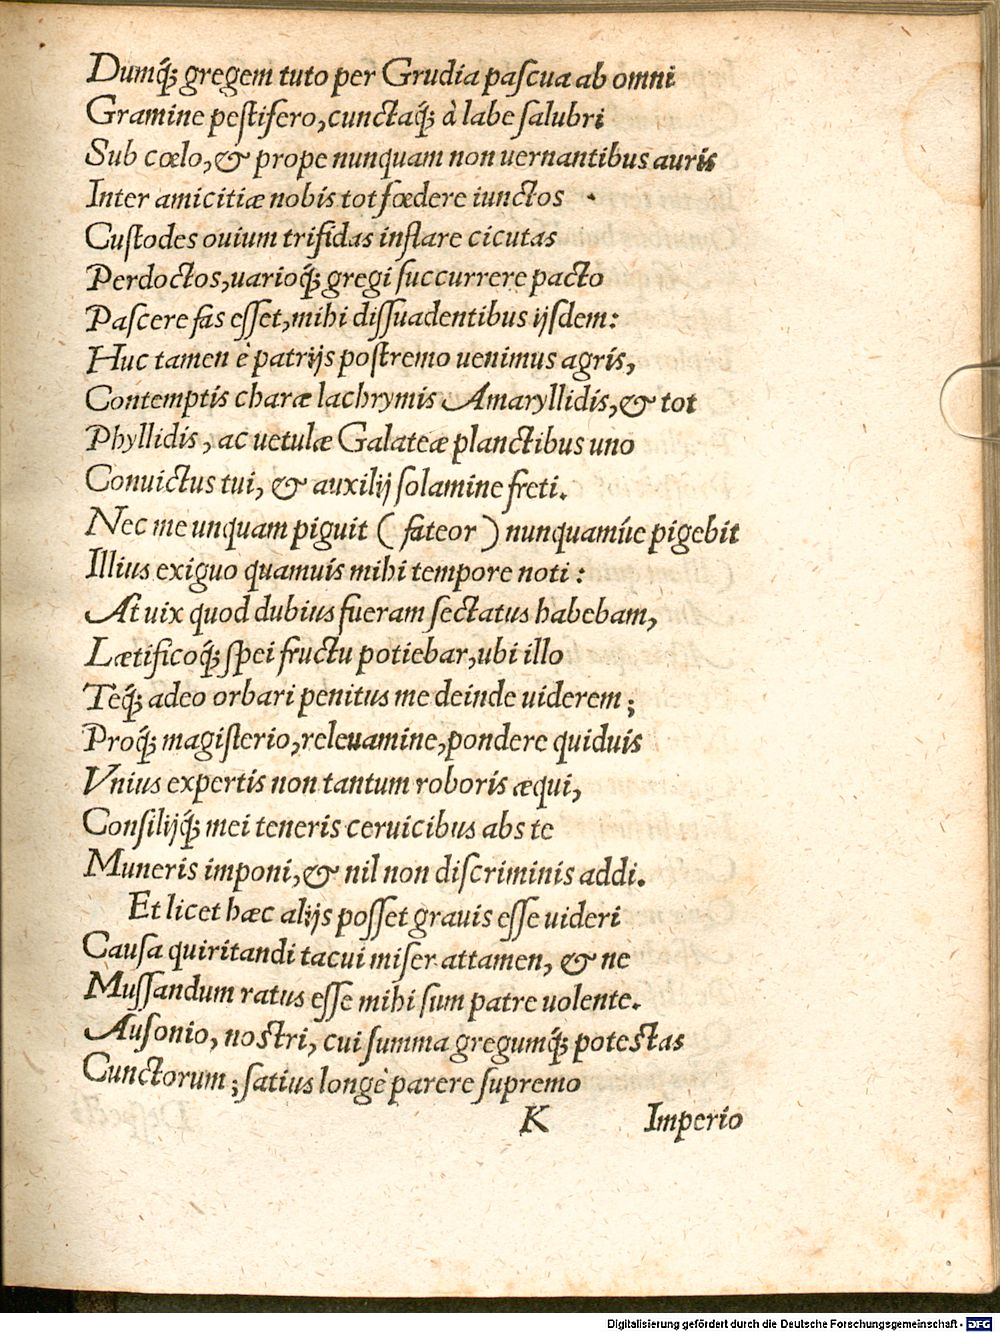 Dumq́; gregem tuto per Grudia paſcua ab omni
Gramine peſtifero,cunctaq́; à labe ſalubri
Sub cœlo,& prope nunquam non uernantibus auris
Inter amicitiæ nobis tot fœdere iunctos
Cuſtodes ouium trifidas inflare cicutas
Perdoctos,uarioq́; gregi ſuccurrere pacto
Paſcere fas eſſet,mihi diſſuadentibus ijſdem:
Huc tamen è patrijs poſtremo uenimus agris,
Contemptis charæ lachrymis Amaryllidis,& tot
Phyllidis, ac uetulæ Galateæ planctibus uno
Conuictus tui, & auxilij ſolamine freti.
Nec me unquam piguit ( fateor ) nunquamúe pigebit
Illius exiguo quamuis mihi tempore noti :
At uix quod dubius fueram ſectatus habebam,
Lætificoq́; ſpei fructu potiebar,ubi illo
Teq́; adeo orbari penitus me deinde uiderem ;
Proq́; magiſterio,releuamine,pondere quiduis
Vnius expertis non tantum roboris æqui,
Conſilijq́; mei teneris ceruicibus abs te
Muneris imponi,& nil non diſcriminis addi.
Et licet hæc alijs poſſet grauis eſſe uideri
Cauſa quiritandi tacui miſer attamen, & ne
Muſſandum ratus eſſe mihi ſum patre uolente.
Auſonio, noſtri, cui ſumma gregumq́; poteſtas
Cunctorum ; ſatius longè parere ſupremo
K Imperio
Digitalisierung gefördert durch die Deutsche Forschungsgemeinschaft - DFG